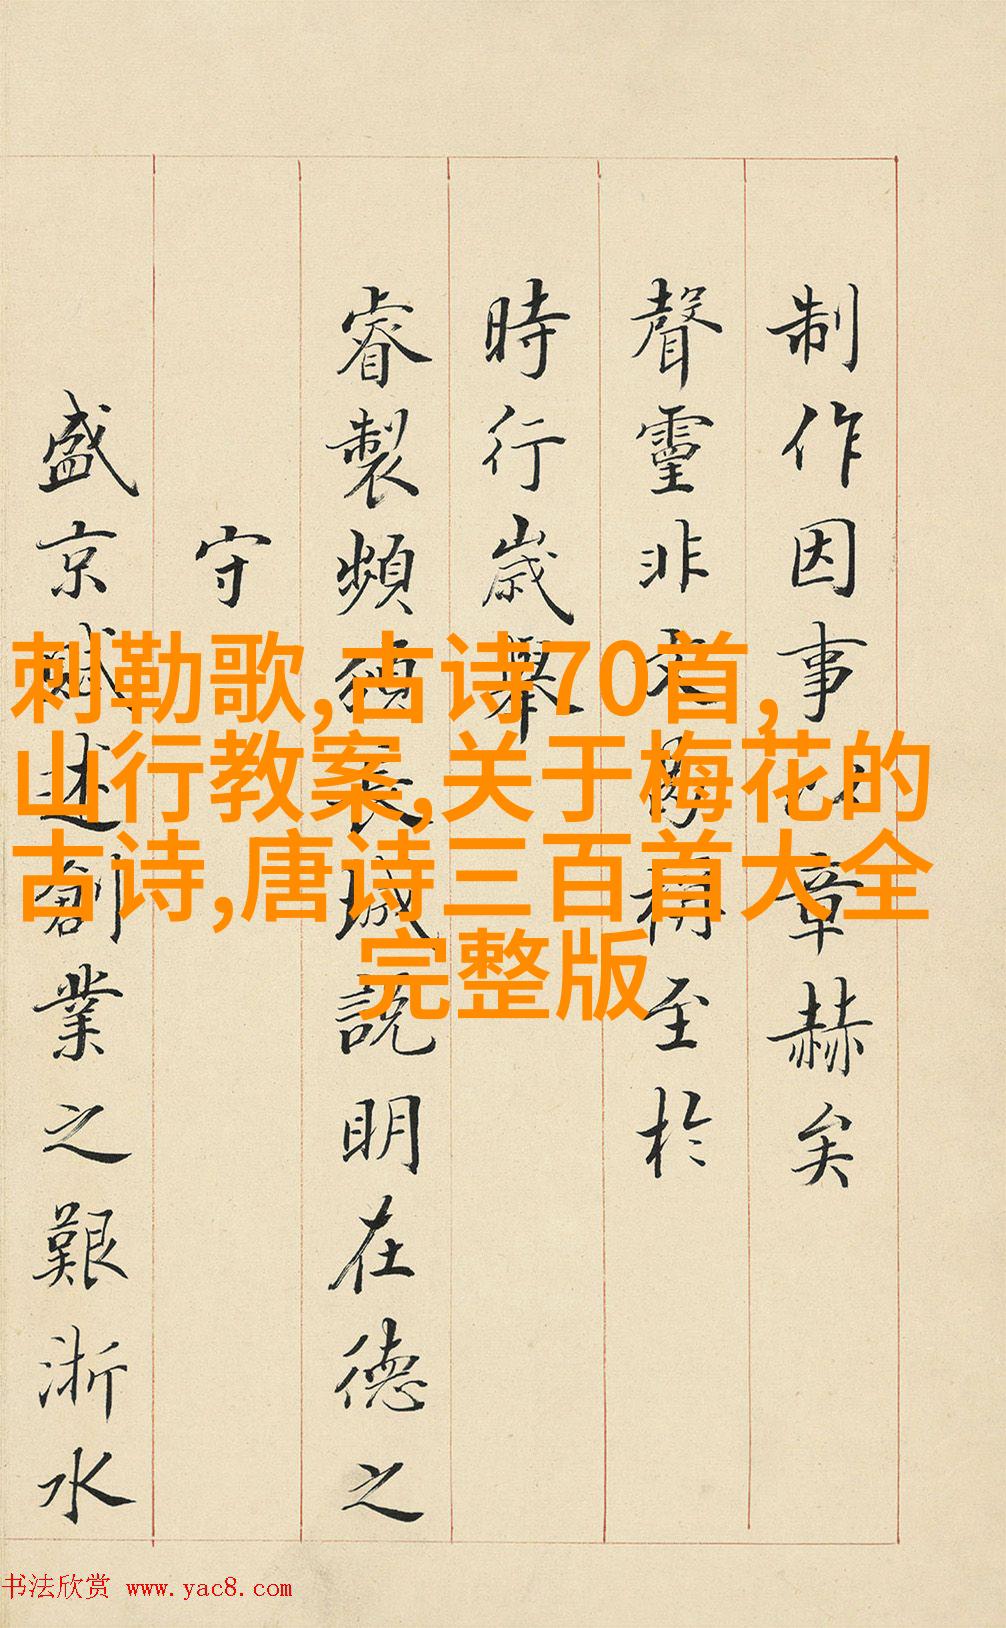 制作因事以章赫矣
聲靈非文曷稱至於
時行歲舉
睿製頻頒長城説明在德之
守
盛京賦述創業之艱浙水
刺勒歌,古诗70首,
山行教案,关于梅花的
古诗,唐诗三百首大全
完整版
书法欣赏 www.yac8.com